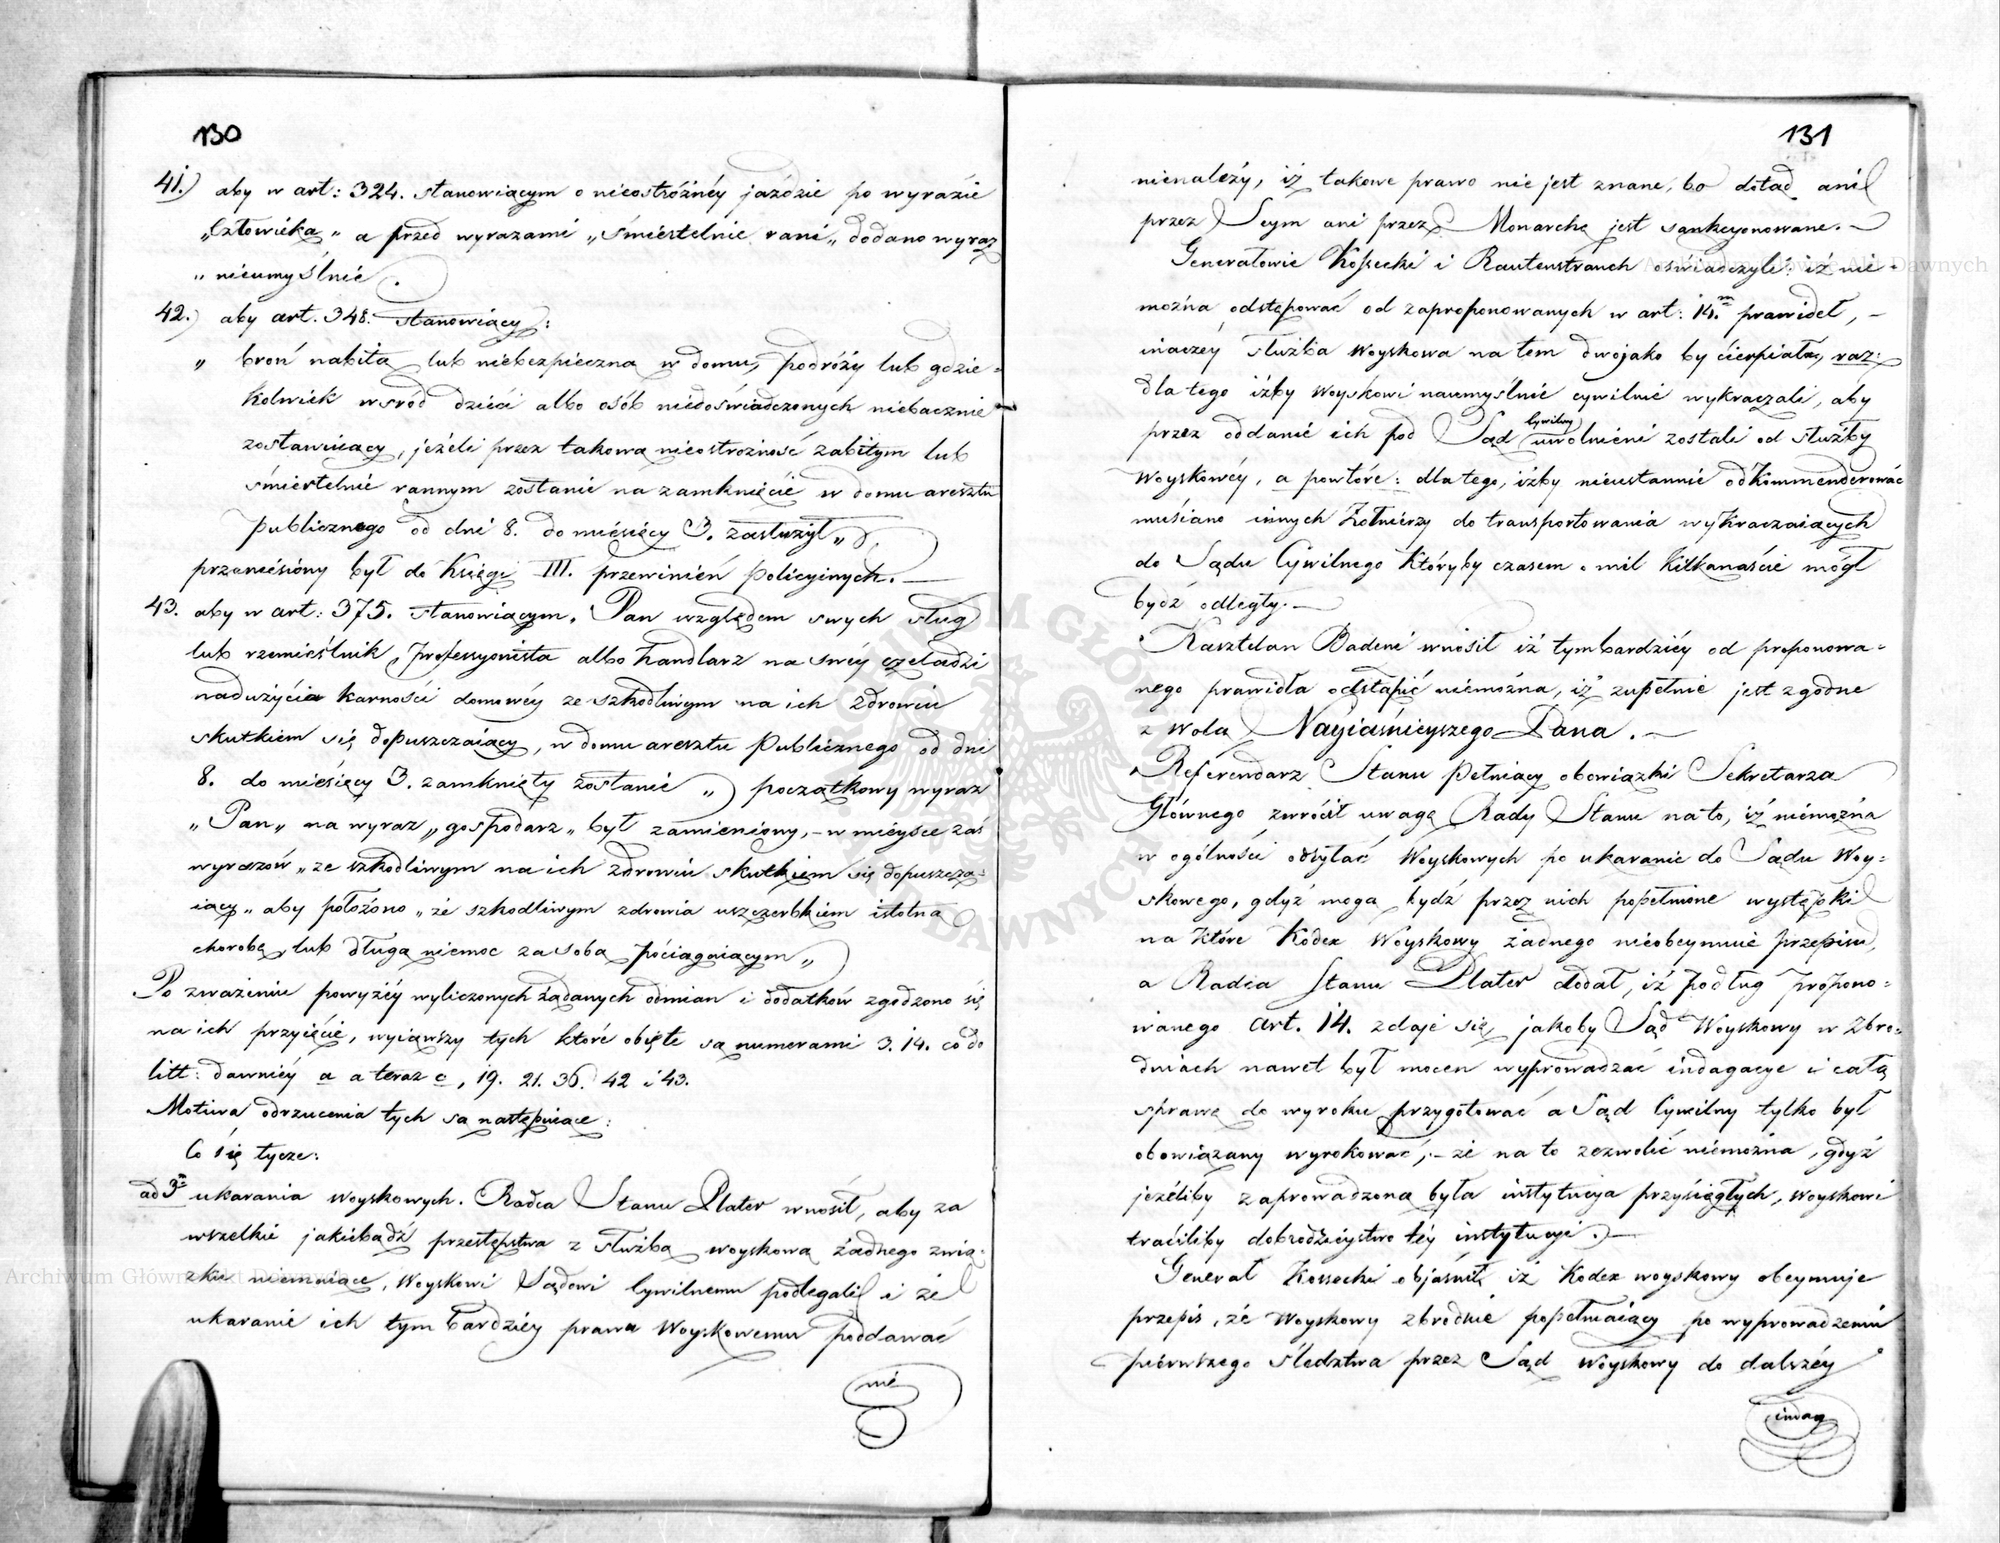 130
41.) aby w art: 324. stanowiącym o nieostróżnéy jaździe po wyrazie
„Człowieka„ a przed wyrazami „śmiertelnie rani„ dodano wyraz
„nieumyślnie.
42.) aby art. 348. stanowiący:
„broń nabitą lub niebezpieczną w domu, podróży lub gdzie=
kolwiek wśród dzieci albo osób niedoświadczonych niebacznie
zostawuiący, jeżeli przez takową nieostrożność zabitym lub
śmiertelnie rannym zostanie na zamknięcie w domu aresztu
publicznego od dni 8. do miesięcy 3. zasłużył„
przeniesiony był do Księgi III. przewinień policyinych.—
43. aby w art: 375. stanowiącym „Pan względem swych sług
lub rzemieślnik, professyonista albo handlarz na swéy czeladzi
nadużycia karności domowéy ze szkodliwym na ich zdrowiu
skutkiem się dopuszczaiący, w domu aresztu publicznego od dni
8. do miesięcy 3. zamknięty zostanie„ początkowy wyraz
„Pan„ na wyraz „gospodarz„ był zamieniony, – w mieysce zaś
wyrazów „ze szkodliwym na ich zdrowiu skutkiem się dopuszcza=
iący„ aby położono „ze szkodliwym zdrowia uszczerbkiem istotną
chorobę lub długą niemoc za sobą pociągaiącym„
Po zważeniu powyżéy wyliczonych żądanych odmian i dodatków zgodzono się
na ich przyięcie, wyiąwszy tych które obięte są numerami 3. 14. co do
litt: dawniéy a a teraz c, 19. 21. 36. 42 i 43.
Motiwa odrzucenia tych są następuiące:
Co się tycze:
ad 3m ukarania woyskowych. Radca Stanu Plater wnosił, aby za
wszelkie jakiebądź przestępstwa z służbą woyskową żadnego zwią=
zku niemaiące, Woyskowi Sądowi Cywilnemu podlegali i że
ukaranie ich tym bardziéy prawu Woyskowemu poddawać
nie
131
nienależy, iż takowe prawo nie jest znane, bo dotąd ani
przez Seym ani przez Monarchę jest sankcyonowane.—
Generałowie Kossecki i Rautenstrauch oświadczyli: iż nie
można odstępować od zaproponowanych w art: 14.m prawideł,–
inaczey służba Woyskowa na tem dwojako by cierpiała, raz:
dla tego iżby Woyskowi naumyślnie cywilnie wykraczali, aby
przez oddanie ich pod Sąd Cywilny uwolnieni zostali od służby
Woyskowéy, a powtóre: dla tego, iżby nieustannie odkommenderować
musiano innych Żołnierzy do transportowania wykraczaiących
do Sądu Cywilnego któryby czasem o mil kilkanaście mógł
bydź odległy.—
Kasztelan Badeni wnosił iż tymbardziéy od proponowa=
nego prawidła odstąpić niemożna, iż zupełnie jest zgodne
z wolą Nayiaśnieyszego Pana.—
Referendarz Stanu pełniący obowiązki Sekretarza
Głównego zwrócił uwagę Rady Stanu na to, iż niemożna
w ogólności odsyłać Woyskowych po ukaranie do Sądu Woy=
skowego, gdyż mogą bydź przez nich popełnione występki
na które Kodex Woyskowy żadnego nieobeymuie przepisu,
a Radca Stanu Plater dodał, iż podług propono=
wanego art. 14. zdaje się, jakoby Sąd Woyskowy w zbro=
dniach nawet był mocen wyprowadzać indagacye i całą
sprawę do wyroku przygotować a Sąd Cywilny tylko był
obowiązany wyrokować; – że na to zezwolić niemożna, gdyż
jeżeliby zaprowadzoną była instytucya przysięgłych, Woyskowi
traciliby dobrodzieystwo téy instytucyi.—
Generał Kossecki objaśnił, iż Kodex woyskowy obeymuje
przepis, że Woyskowy zbrodnie popełniaiący po wyprowadzeniu
pierwszego śledztwa przez Sąd Woyskowy do dalszéy
indag
Archiwum Główne Akt Dawnych
Archiwum Główne Akt Dawnych
ARCHIWUM GŁÓWNE AKT DAWNYCH